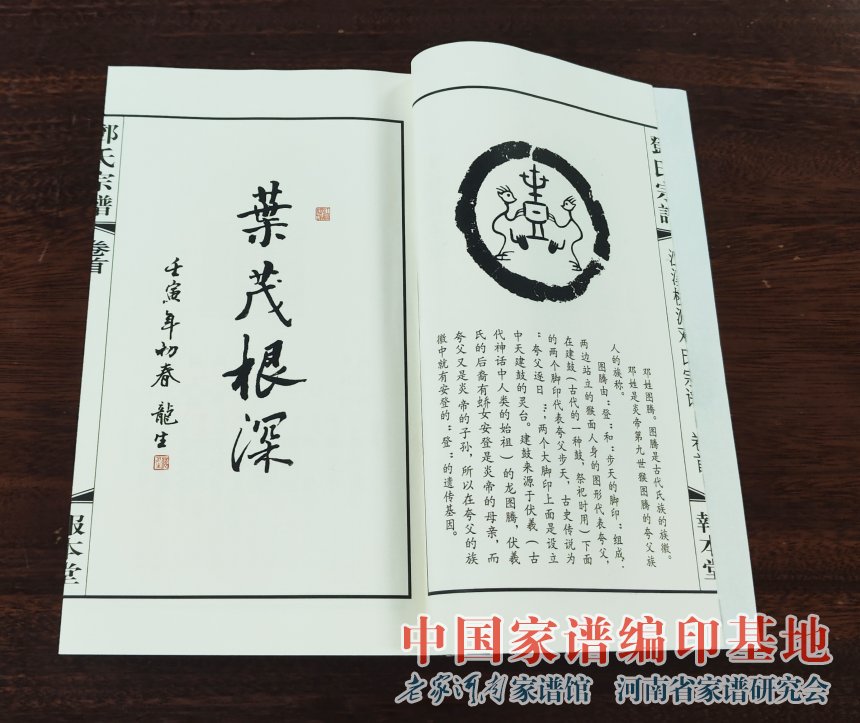 葉茂根深
壬寅年初春 龍生
氏宗譜
卷首
報本堂
邓姓图腾。图腾是古代氏族的族徽。
邓姓是炎帝第九世猴图腾的夸父族
人的族称。
图腾由“登”和“步天的脚印”组成，
两边站立的猴面人身的图形代表夸父，
在建鼓（古代的一种鼓，祭祀时用）下面
的两个脚印代表夸父步天，古史传说为
“夸父逐日”。两个大脚印上面是设立
中天建鼓的灵台。建鼓来源于伏羲（古
代神话中人类的始祖）的龙图腾，伏羲
氏的后裔有蟜女安登是炎帝的母亲，而
夸父又是炎帝的子孙，所以在夸父的族
徽中就有安登的“登”的遗传基因。
氏宗譜
報本堂
中国家谱编印基地
老家河南家谱馆 河南省家谱研究会